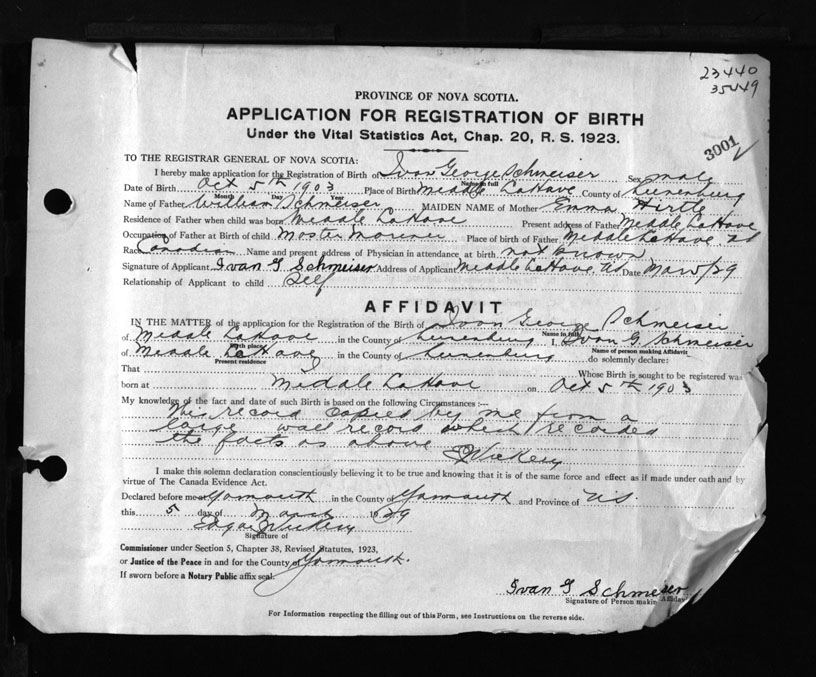 23440
35449
3001
PROVINCE OF NOVA SCOTIA.
APPLICATION FOR REGISTRATION OF BIRTH
Under the Vital Statistics Act, Chap. 20, R. S. 1923.
TO THE REGISTRAR GENERAL OF NOVA SCOTIA:
I hereby make application for the Registration of Birth of Ivan George Schmeiser Sex male
Name in full
Date of Birth Oct 5th 1903 Place of Birth Middle LaHave County of Lunenburg
Month Day Year
Name of Father William Schmeiser MAIDEN NAME of Mother Emma Hirtle
Residence of Father when child was born Middle LaHave Present address of Father Middle LaHave
Occupation of Father at Birth of child Master Mariner Place of birth of Father Middle LaHave NS
Race Canadian Name and present address of Physician in attendance at birth not known
Signature of Applicant Ivan G Schmeiser Address of Applicant Middle LaHave NS Date Mar 5/29
Relationship of Applicant to child Self
AFFIDAVIT
IN THE MATTER of the application for the Registration of the Birth of Ivan George Schmeiser
Name in full
of Middle LaHave in the County of Lunenburg I, Ivan G. Schmeiser
Birth place Name of person making Affidavit
of Middle LaHave in the County of Lunenburg do solemnly declare:
Present residence
That I Whose Birth is sought to be registered was
born at Middle LaHave on Oct 5th 1903
My knowledge of the fact and date of such Birth is based on the following Circumstances :—
This record copied by me from a
large wall record which recorded
the facts as above
EVickery
I make this solemn declaration conscientiously believing it to be true and knowing that it is of the same force and effect as if made under oath and by
virtue of The Canada Evidence Act.
Declared before me at Yarmouth in the County of Yarmouth and Province of NS.
this 5 day of March 1929
Edgar Vickery
Signature of
Commissioner under Section 5, Chapter 38, Revised Statutes, 1923,
or Justice of the Peace in and for the County of Yarmouth.
If sworn before a Notary Public affix seal.
Ivan G Schmeiser
Signature of Person makin Affidav
For Information respecting the filling out of this Form, see Instructions on the reverse side.